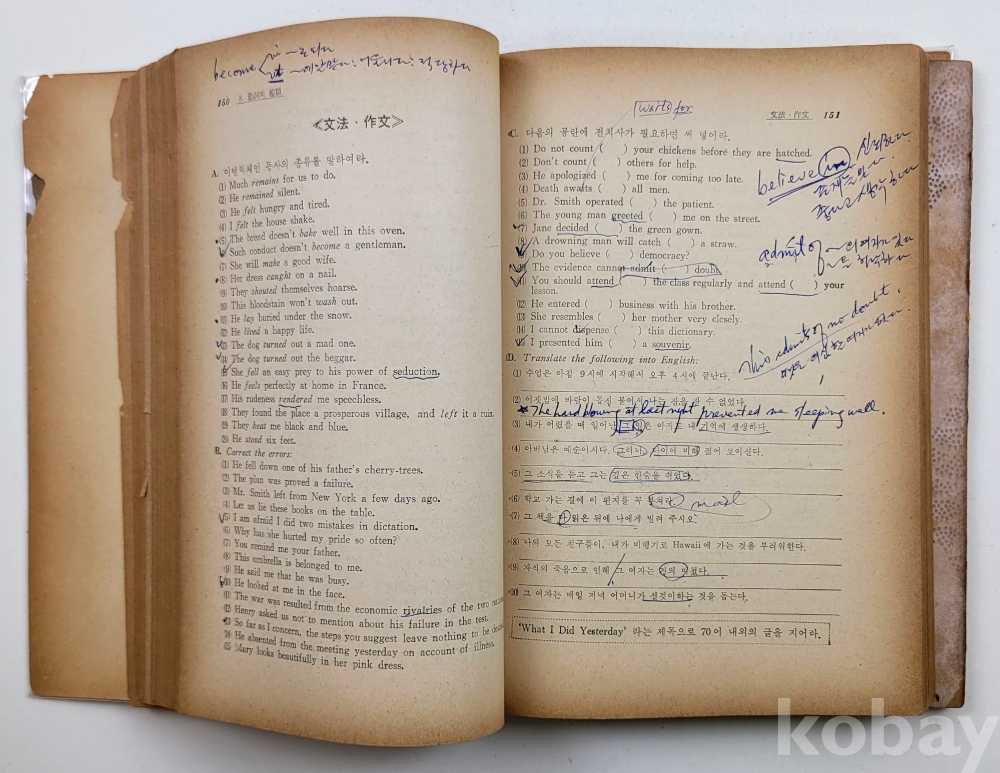 become < vi ~로 되다
vt
150 8. 動詞의 種類
≪文法·作文≫
A. 이탤릭체인 동사의 종류를 말하여라.
(1) Much remains for us to do.
(2) He remained silent.
(3) He felt hungry and tired.
(4) I felt the house shake.
(5) The bread doesn't bake well in this oven.
(6) Such conduct doesn't become a gentleman.
(7) She will make a good wife.
(8) Her dress caught on a nail.
(9) They shouted themselves hoarse.
(10) This bloodstain won't wash out.
(11) He lay buried under the snow.
(12) He lived a happy life.
(13) The dog turned out a mad one.
(14) The dog turned out the beggar.
(15) She fell an easy prey to his power of seduction.
(16) He feels perfectly at home in France.
(17) His rudeness rendered me speechless.
(18) They found the place a prosperous village, and left it a ruin.
(19) They beat me black and blue.
(20) He stood six feet.
B. Correct the errors:
(1) He fell down one of his father's cherry-trees.
(2) The plan was proved a failure.
(3) Mr. Smith left from New York a few days ago.
(4) Let us lie these books on the table.
(5) I am afraid I did two mistakes in dictation.
(6) Why has she hurted my pride so often?
(7) You remind me your father.
(8) This umbrella is belonged to me.
(9) He said me that he was busy.
(10) He looked at me in the face.
(11) The war was resulted from the economic rivalries of the two
(12) Henry asked us not to mention about his failure in the test.
(13) So far as I concern, the steps you suggest leave nothing to be
(14) He absented from the meeting yesterday on account of illness.
(15) Mary looks beautifully in her pink dress.
waits for
文法·作文 151
C. 다음의 공란에 전치사가 필요하면 써 넣어라.
(1) Do not count ( ) your chickens before they are hatched.
(2) Don't count ( ) others for help.
(3) He apologized ( ) me for coming too late.
(4) Death awaits ( ) all men.
(5) Dr. Smith operated ( ) the patient.
(6) The young man greeted ( ) me on the street.
(7) Jane decided ( ) the green gown.
(8) A drowning man will catch ( ) a straw.
(9) Do you believe ( ) democracy?
(10) The evidence cannot admit ( ) doubt.
(11) You should attend ( ) the class regularly and attend ( ) your
lesson.
(12) He entered ( ) business with his brother.
(13) She resembles ( ) her mother very closely.
(14) I cannot dispense ( ) this dictionary.
(15) I presented him ( ) a souvenir.
believe in
admit of ~의 여지가 있다
This admits of no doubt.
D. Translate the following into English:
(1) 수업은 아침 9시에 시작해서 오후 4시에 끝난다.
(2) 어젯밤에 바람이 몹시 불어서 나는 잠을 잘 수 없었다.
The hard blowing at last night prevented me sleeping well.
(3) 내가 어렸을 때 일어난 그 일은 아직도 내 기억에 생생하다.
(4) 아버님은 예순이시다. 그러나, 나이에 비해 젊어 보이신다.
(5) 그 소식을 듣고 그는 깊은 한숨을 쉬었다.
(6) 학교 가는 길에 이 편지를 꼭 mail
(7) 그 책을 다 읽은 뒤에 나에게 빌려 주시오.
(8) 나의 모든 친구들이, 내가 비행기로 Hawaii에 가는 것을 부러워한다.
(9) 자식의 죽음으로 인해 그 여자는 거의 미쳤다.
(10) 그 여자는 매일 저녁 어머니가 설겆이하는 것을 돕는다.
'What I Did Yesterday' 라는 제목으로 70어 내외의 글을 지어라.
kobay